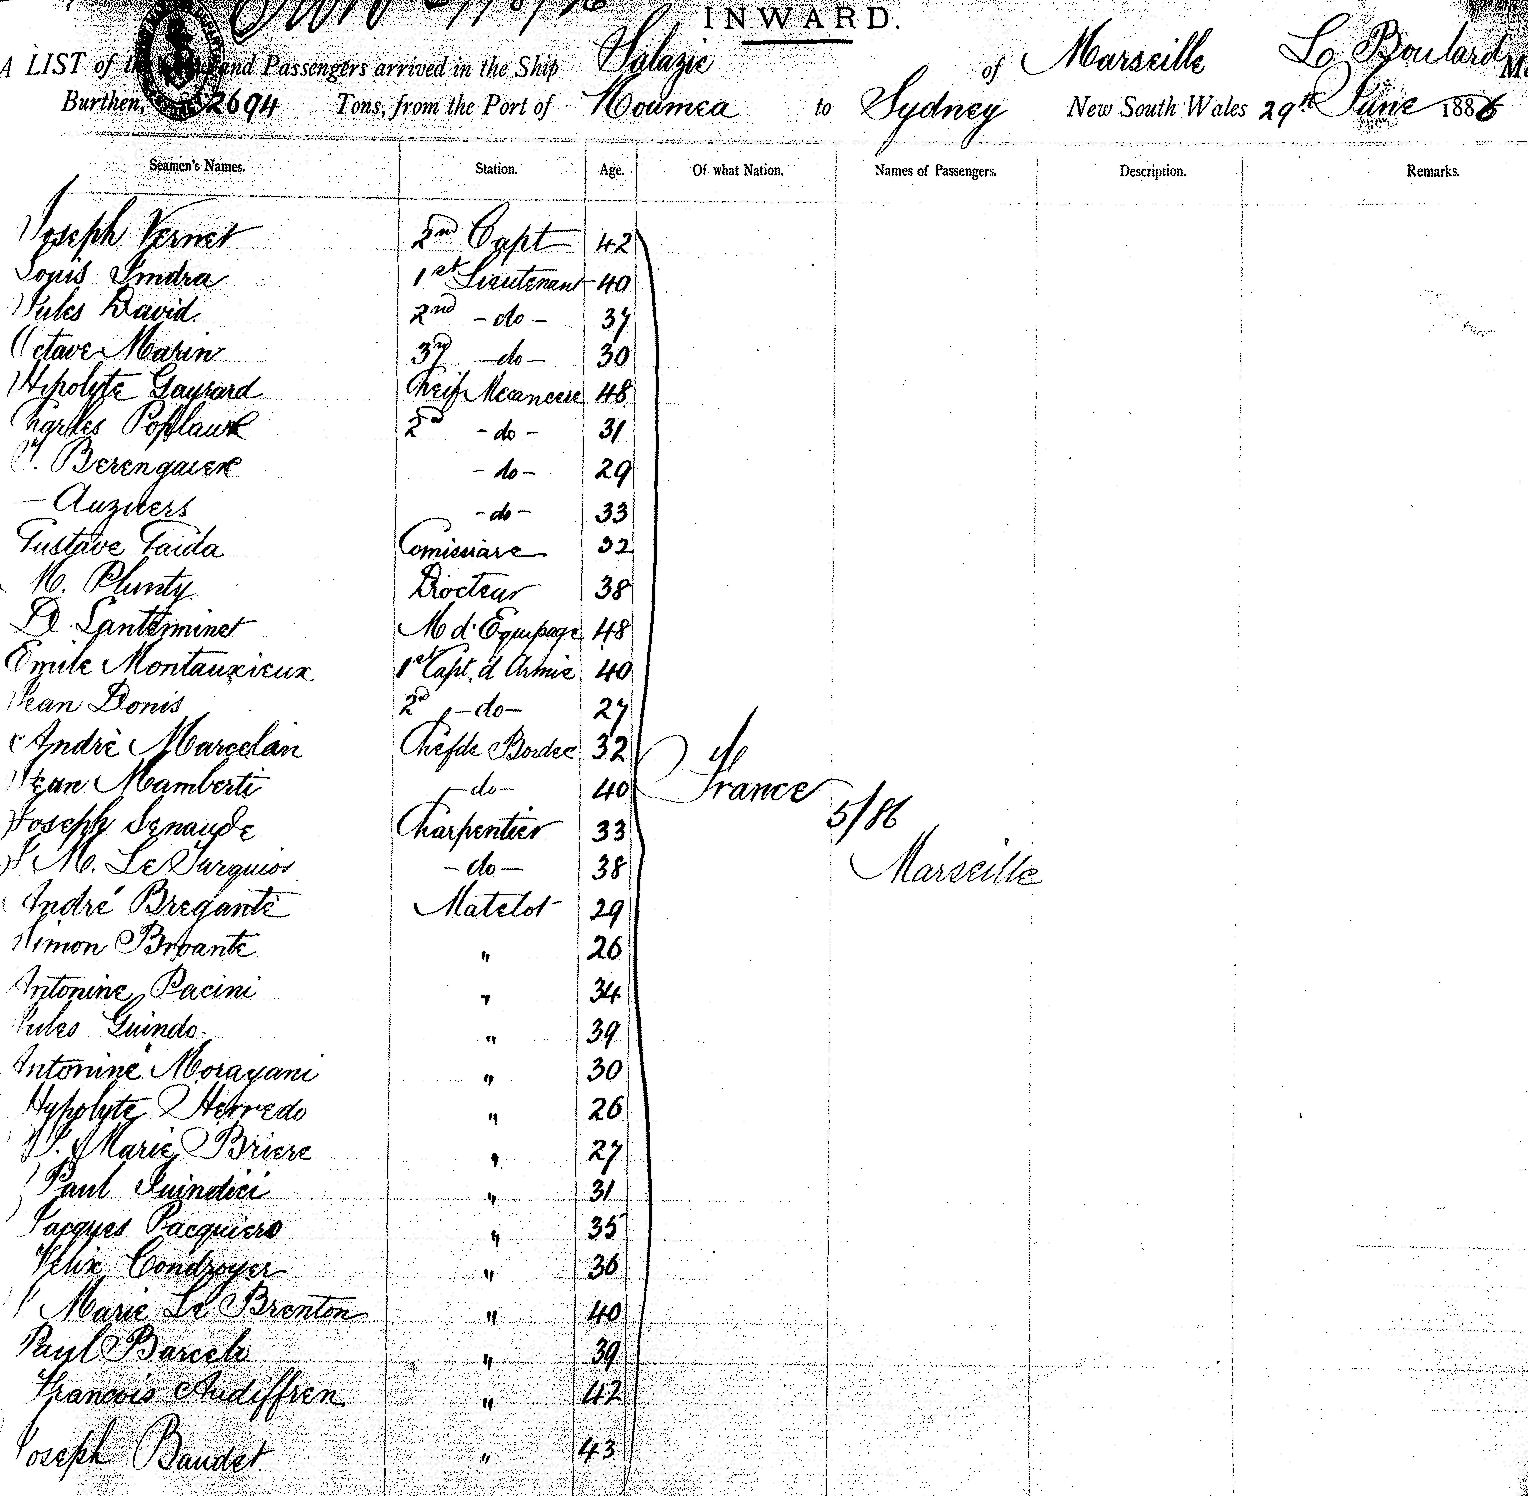 INWARD.
A LIST of the and Passengers arrived in the Ship Salazie of Marseille Le Boulard
Burthen, 2694 Tons, from the Port of Noumea to Sydney New South Wales 29th June 1886
Seamen's Names. Station. Age. Of what Nation. Names of Passengers. Description. Remarks.
Joseph Vernet 2nd Capt 42
Louis Imdra 1st Lieutenant 40
Jules David 2nd -do- 37
Octave Marin 3rd -do- 30
Hipolyte Gayrard Cheif Mecanceie 48
Charles Pofflaux 2d -do- 31
Berengaier -do- 29
- Auzivers -do- 33
Gustave Gaida Comissiare 32
M. Plunty Drocteur 38
D Lanteminet M d'Equipage 48
Emile Montauxieux 1st Capt. d Armie 40
Jean Donis 2d -do- 27
André Marcelan Chefde Bordee 32
Jean Mamberti -do- 40 France
5/86
Joseph Senaude Charpentier 33
J M. Le Turquios -do- 38 Marseille
André Bregante Matelot 29
Simon Broante " 26
Antonine Pacini " 34
Jules Guindo " 39
Antonine Morayani " 30
Hypolyte Herredo " 26
Marie Briere " 27
Paul Guindici " 31
Jacques Pacquiers " 35
Felix Condroyer " 36
Marie Le Brenton " 40
Paul Barcelo " 39
Francois Audiffren " 42
Joseph Baudet " 43